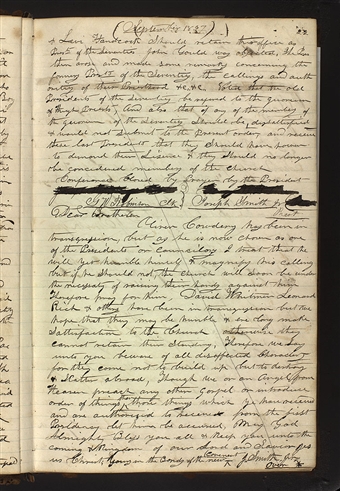 (September 1837)
& Levi Handcock Should retain his office as
Prest of the Seventies. John Gould was objected, He then
then arose and made some remarks concerning the
former Presdts of the Seventy, the callings and auth
ority of their Priesthood &c.&c. Voted that the old
Presidents of the Seventy be refered to the quorum
of High Priests, And also that if any of the members of
the quorum of the Seventy Should be dissatisfied
& would not submit to the present order, and receive
these last Presidents that they Should have power
to demand their Lisence & they Should no longer
be concidered members of the church
Conference Closed by Prayer by the President
G W Robinson Clk Joseph Smith Jr
Prest
Dear Brotheren
Oliver Cowdery has been in
transgression, but as he is now chosen as one
of the Presidents or Councilors I trust that he
will yet humble himself & magnify his calling
but if he should not, the church will soon be under
the necessaty of raising their hands against him
Therefore pray for him, David Whitmer Leonard
Rich & others have been in transgression but we
hope that they may be humble & ere long make
Satisfaction to the Church otherwise they
cannot retain their Standing, Therefore we Say
unto you beware of all disaffected Characters
for they come not to build up but to destroy
& scatter abroad, Though we or an Angel from
Heaven preach any other Gospel or introduce
order of things those things which ye have received
and are authorized to received from the first
Presidency let him be accursed, May God
Almighty Bless you all & keep you unto the
coming & Kingdom of our Lord and Saviour Jes
us Christ, Yours in the Bonds of the new Covenant J. Smith Jr
Over